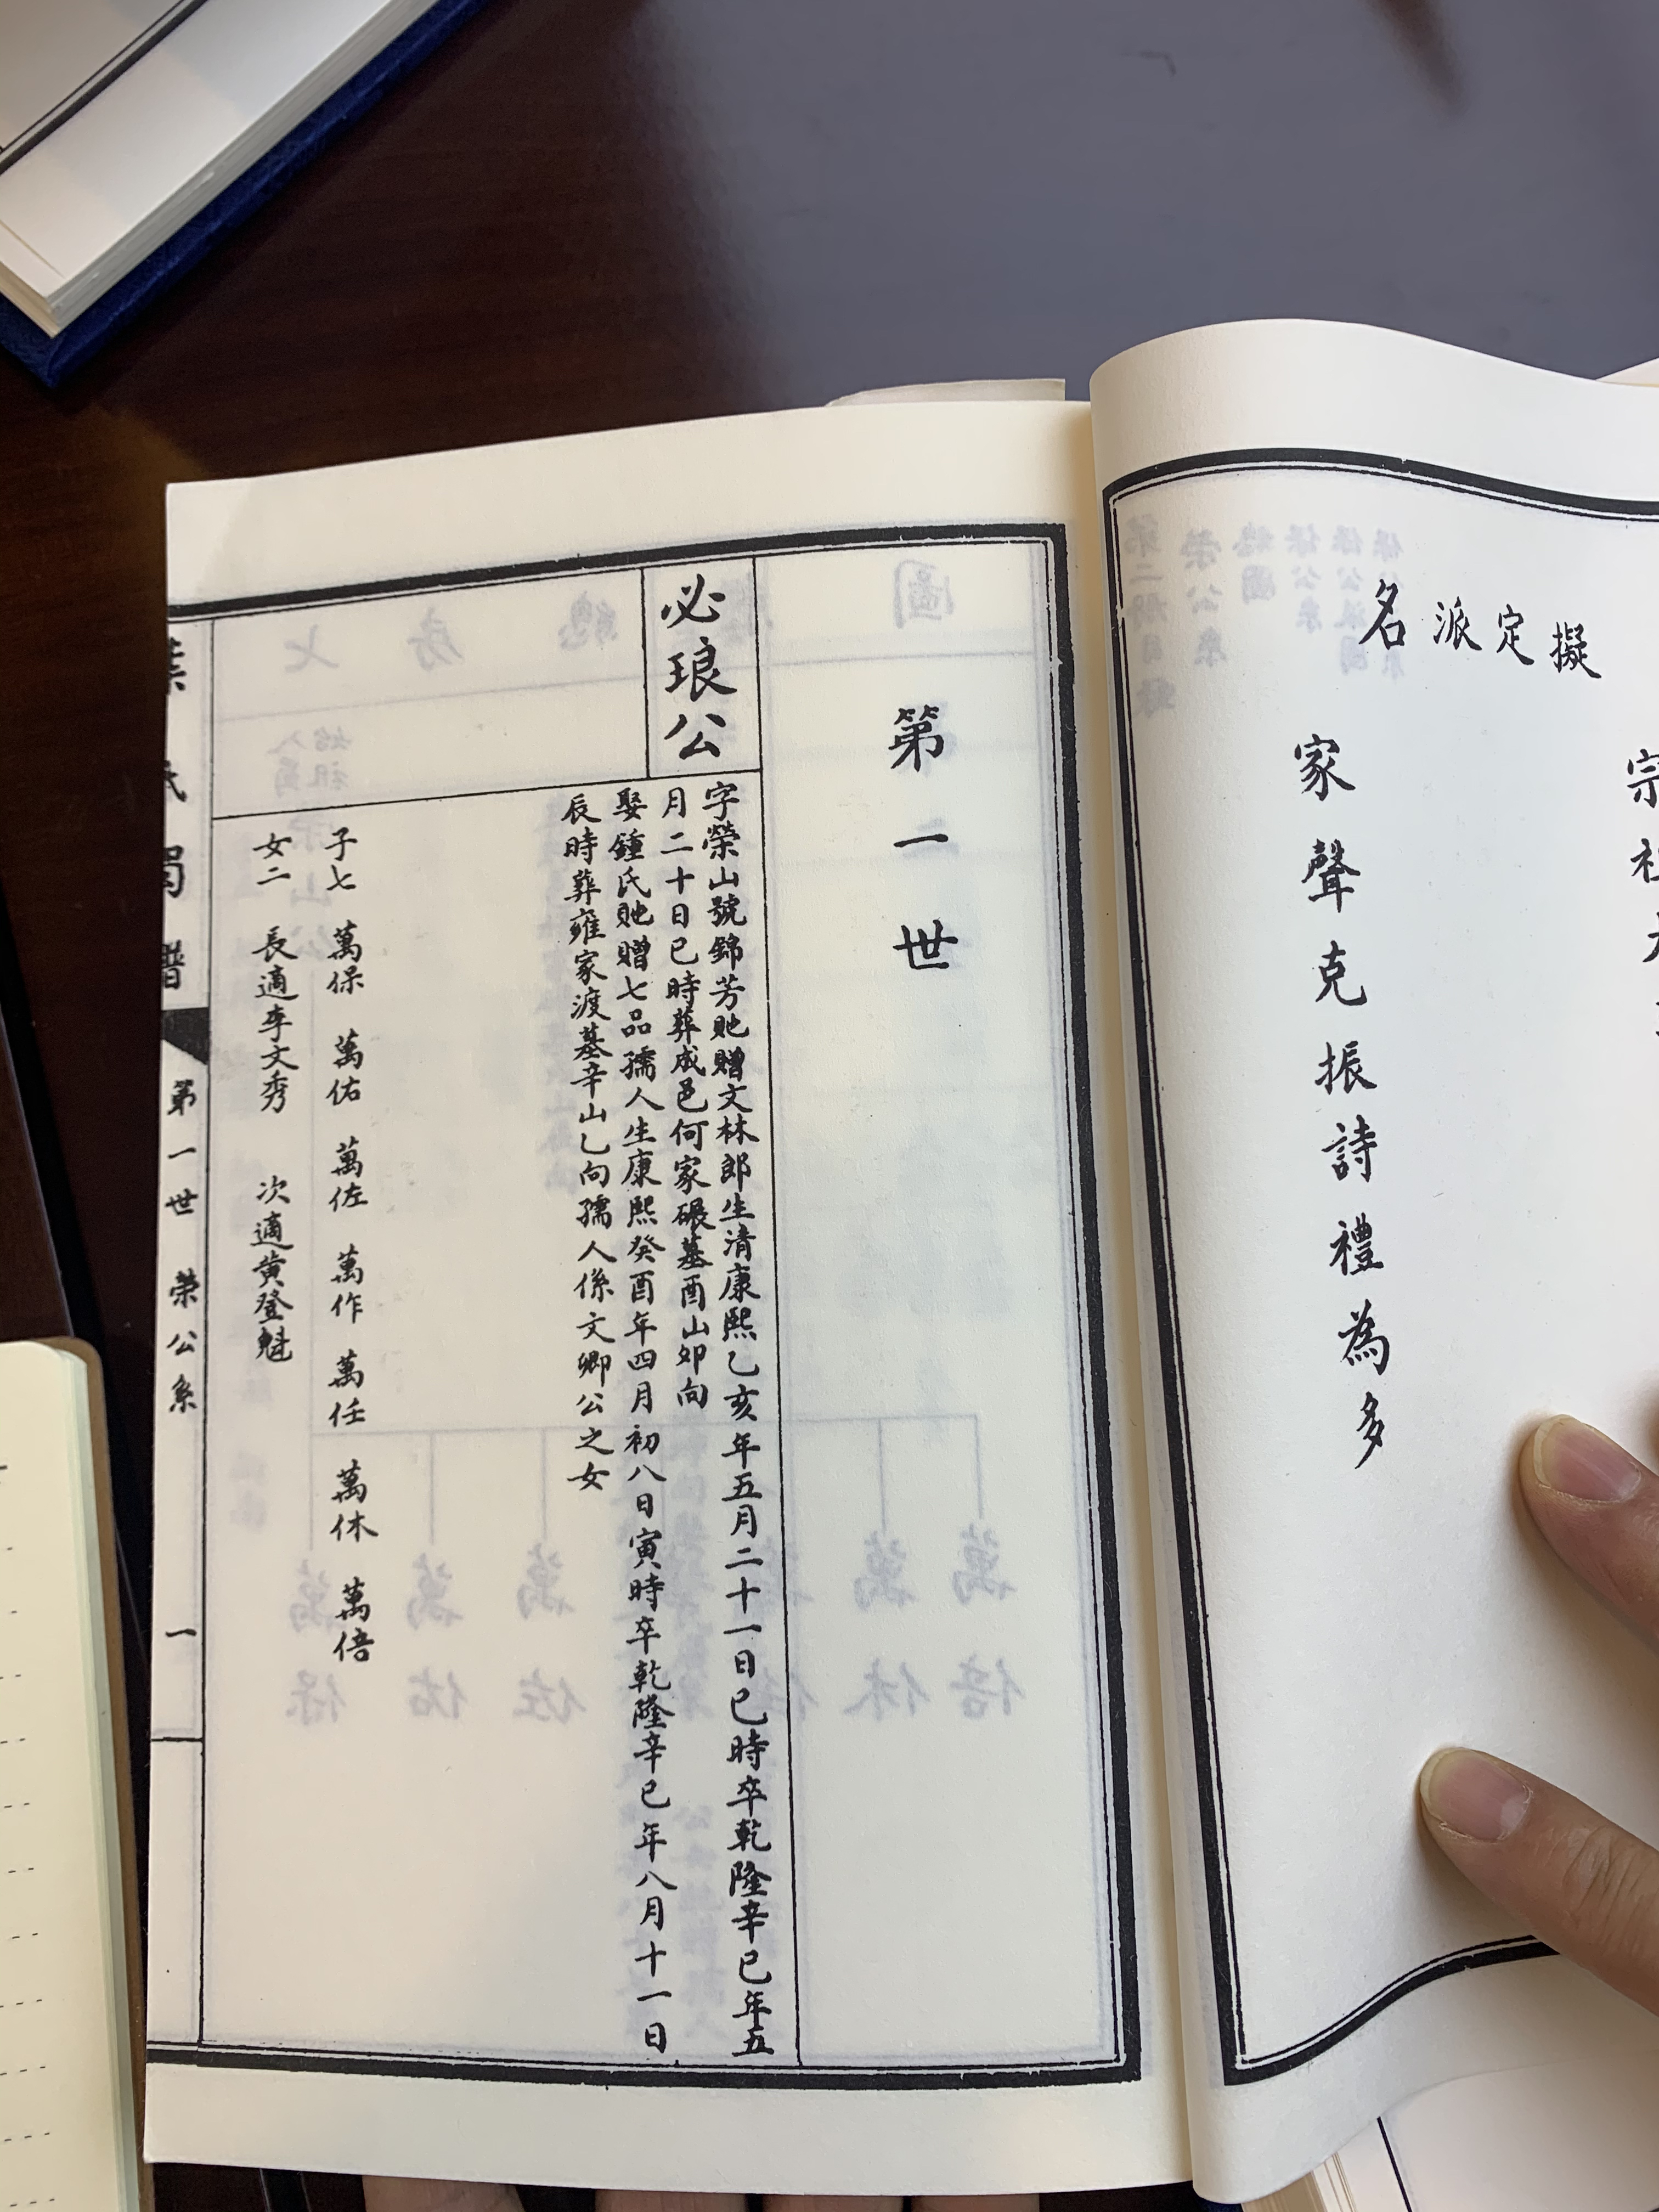 擬定派名
家聲克振詩禮為多
第一世
必琅公
字榮山號錦芳貤贈文林郎生清康熙乙亥年五月二十一日巳時卒乾隆辛巳年五
月二十日巳時葬成邑何家碾墓酉山卯向
娶鍾氏貤贈七品孺人生康熙癸酉年四月初八日寅時卒乾隆辛巳年八月十一日
辰時葬雍家渡墓辛山乙向孺人係文卿公之女
子七 萬保 萬佑 萬佐 萬作 萬任 萬休 萬倍
女二 長適李文秀 次適黃登魁
第一世 榮公系 一